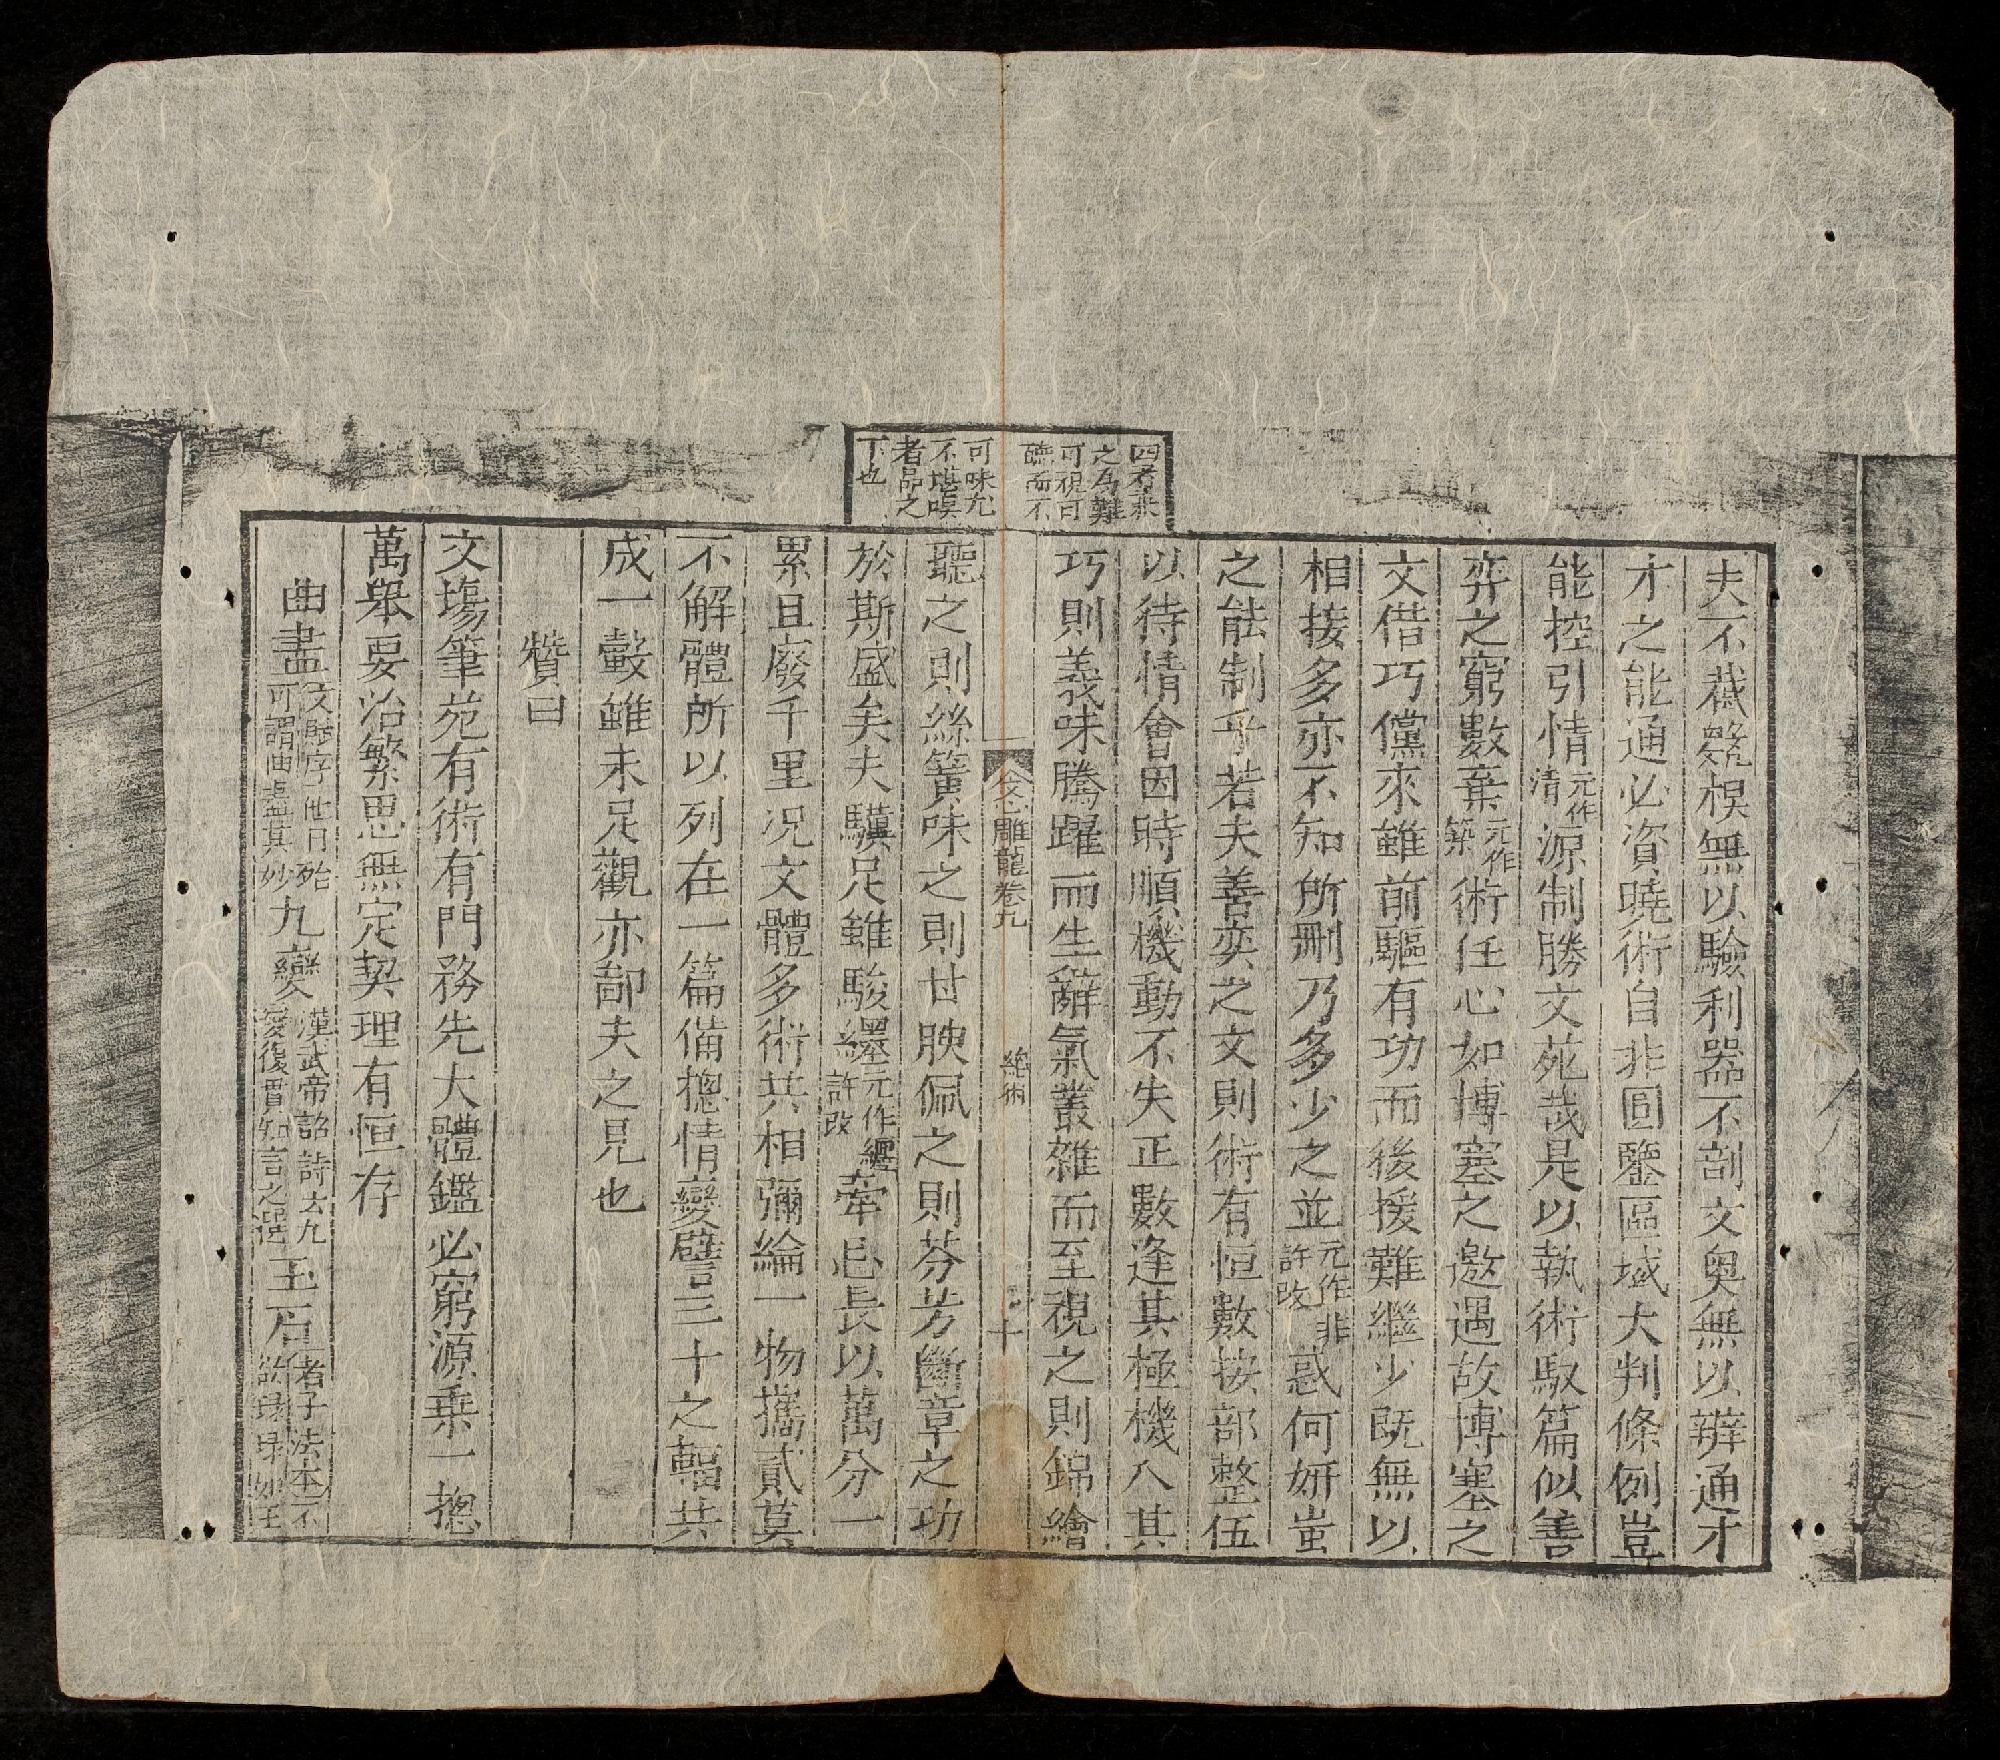 夫不截盤根無以驗利器不剖文奧無以辨通才
才之能通必資曉術自非圓鑒區域大判條例豈
能控引情元作清源制勝文苑哉是以執術馭篇似善
弈之窮數棄元作築術任心如博塞之邀遇故博塞之
文借巧儻來雖前驅有功而後援難繼少既無以
相接多亦不知所刪乃多少之並元作非許改惑何妍蚩
之能制乎若夫善奕之文則術有恒數按部整伍
以待情會因時順機動不失正數逢其極機入其
巧則義味騰躍而生辭氣叢雜而至視之則錦繪
四者兼之為難可視可聽而不可味尤不堪嗅者品之下也
文心雕龍卷九
總術
十
聽之則絲簧味之則甘腴佩之則芬芳斷章之功
於斯盛矣夫驥足雖駿纆元作纏許改牽忌長以萬分一
累且廢千里况文體多術共相彌綸一物攜貳莫
不解體所以列在一篇備摠情變譬三十之輻共
成一轂雖未足觀亦鄙夫之見也
贊曰
文塲筆苑有術有門務先大體鑑必窮源乗一摠
萬舉要治繁思無定契理有恒存
曲盡文賦序他日殆可謂曲盡其妙九變漢武帝詔詩云九變復貫知言之選玉石老子法本不欲琭琭如玉